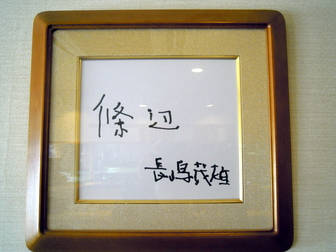 條辺
長島茂雄